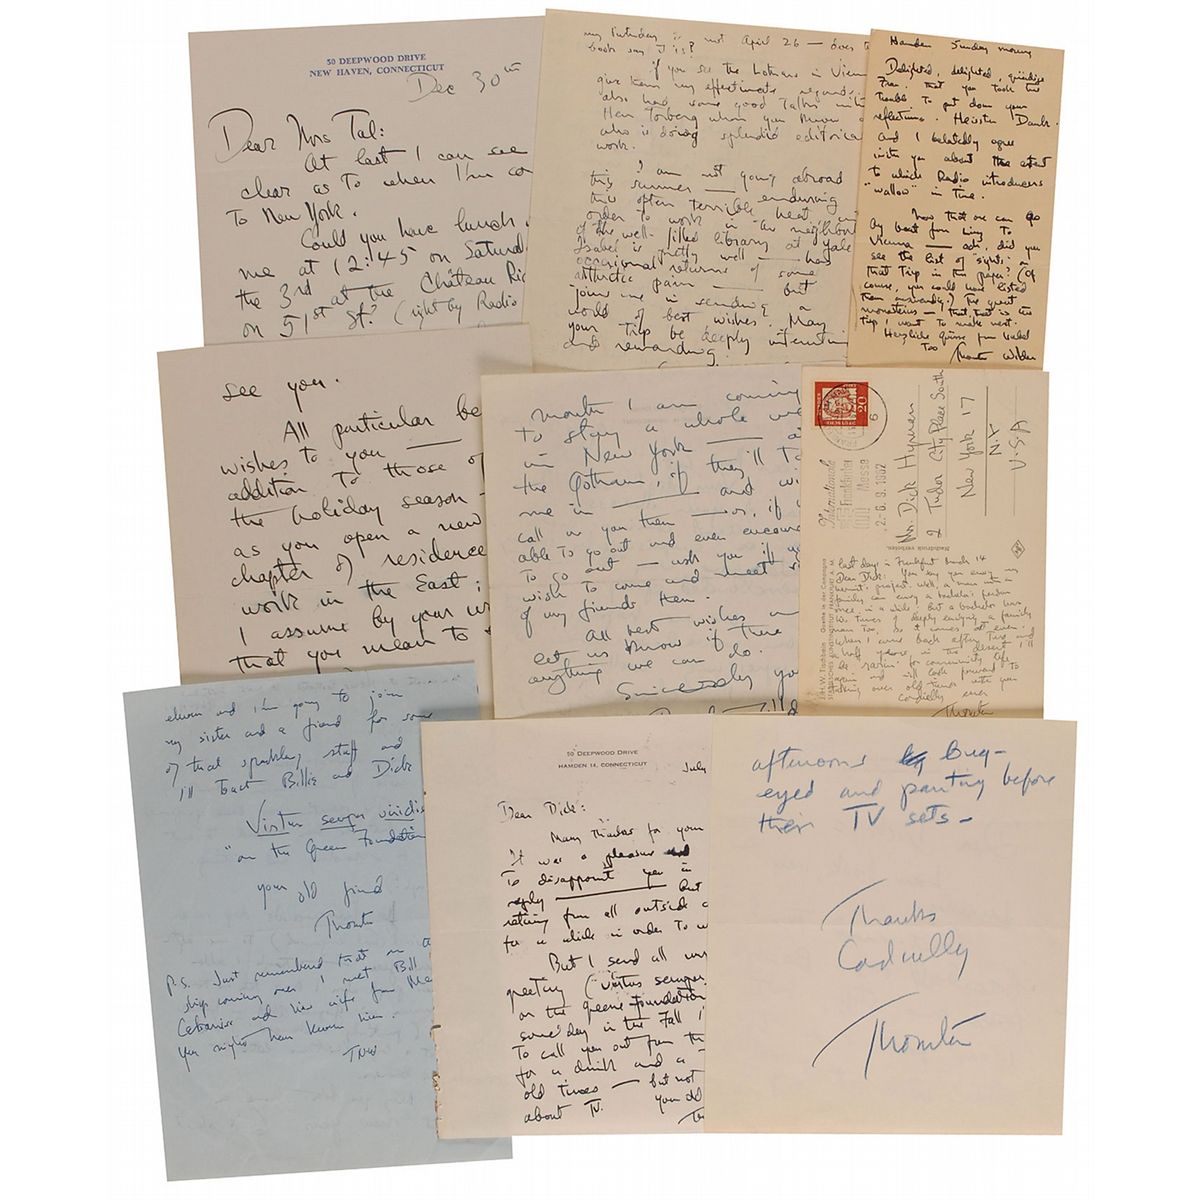 50 DEEPWOOD DRIVE
NEW HAVEN, CONNECTICUT
Dec 30th
Dear Mrs Tal:
At last I can see
clear as to when I'm co
To New York.
Could you have lunch
me at 12:45 on Saturd
the 3rd at the Château Ric
on 51st St? (right by Radio
my birthday is not April 26 — does t
book say it is?
if you see the Lothars in Vien
give them my affectionate regards.
also had some good talks with
Herr Torberg whom you know
who is doing splendid editorial
work.
I am not going abroad
this summer — enduring
this often terrible heat, in
order to work in the neighbor
of the well-filled library at Yale
Isabel is pretty well — has
occasional returns of some
arthritic pain — but
joins me in sending a
world of best wishes. May
your trip be deeply interestin
and rewarding.
Hamden Sunday morning
Delighted, delighted,
Frau, that you took the
trouble to put down your
reflections. Herzlichen Dank.
And I belatedly agree
with you about the extent
to which Radio introducers
"wallow" in time.
Now that one can go
by boat from Linz to
Vienna — did you
see the list of "sights" on
that trip in the paper? (Of
course, you could have listed
them answardig.) The great
monasteries — that, that is the
trip I want to make next.
Herzliche Grüsse from Isabel
Too Thornton Wilder
see you.
All particular be
wishes to you — in
addition to those of
the holiday season —
as you open a new
chapter of residence
work in the East:
I assume by your
that you mean to
month I am coming
to stay a whole w
in New York — a
the Gotham, if they'll t
me in — and wi
call on you then — or, if
able to go out and even encour
to go out — ask you if
wish to come and meet s
of my friends then.
All best wishes
let us know if there
anything we can do.
Sincerely yo
20
DEUTSCHE
Internationale
Frankfurter
Messe
2.-6.9.1962
Mr Dick Hyman
2 Tudor City Place South
New York 17
NY
USA
Nachdruck verboten.
J.H.W. Tischbein Goethe in der Campagna
last days in Frankfurt March 14
Dear Dick: You say you envy my
hermit's project. Well, a man with a
family can envy a bachelor's person
once in a while. But a bachelor has
times of deeply envying a family
man too. So it comes out even.
When I come back after two and
a half years in the desert I'll
be rarin' for community life
again and will look forward to
talking over old times with you
Cordially ever
Thornton
eleven and I'm going to join
my sister and a friend for some
of that sparkling stuff and
I'll toast Billie and Dick
Virtus semper viridis
"on the Green Foundation
your old friend
Thornton
P.S. Just remembered that on the
ship coming over I met Bill
and his wife from
You might have known him.
TNW
50 DEEPWOOD DRIVE
HAMDEN 14, CONNECTICUT
July
Dear Dick:
Many thanks for your
It was a pleasure and
To disappoint you in
reply — but
retiring from all outside
for a while in order to w
But I send all my
greeting (Virtus semper
on the green foundation
some day in the Fall I
To call you out from the
for a drink and a
old times — but not
about TV. your old
afternoons bug-
eyed and panting before
their TV sets —
Thanks
Cordially
Thornton